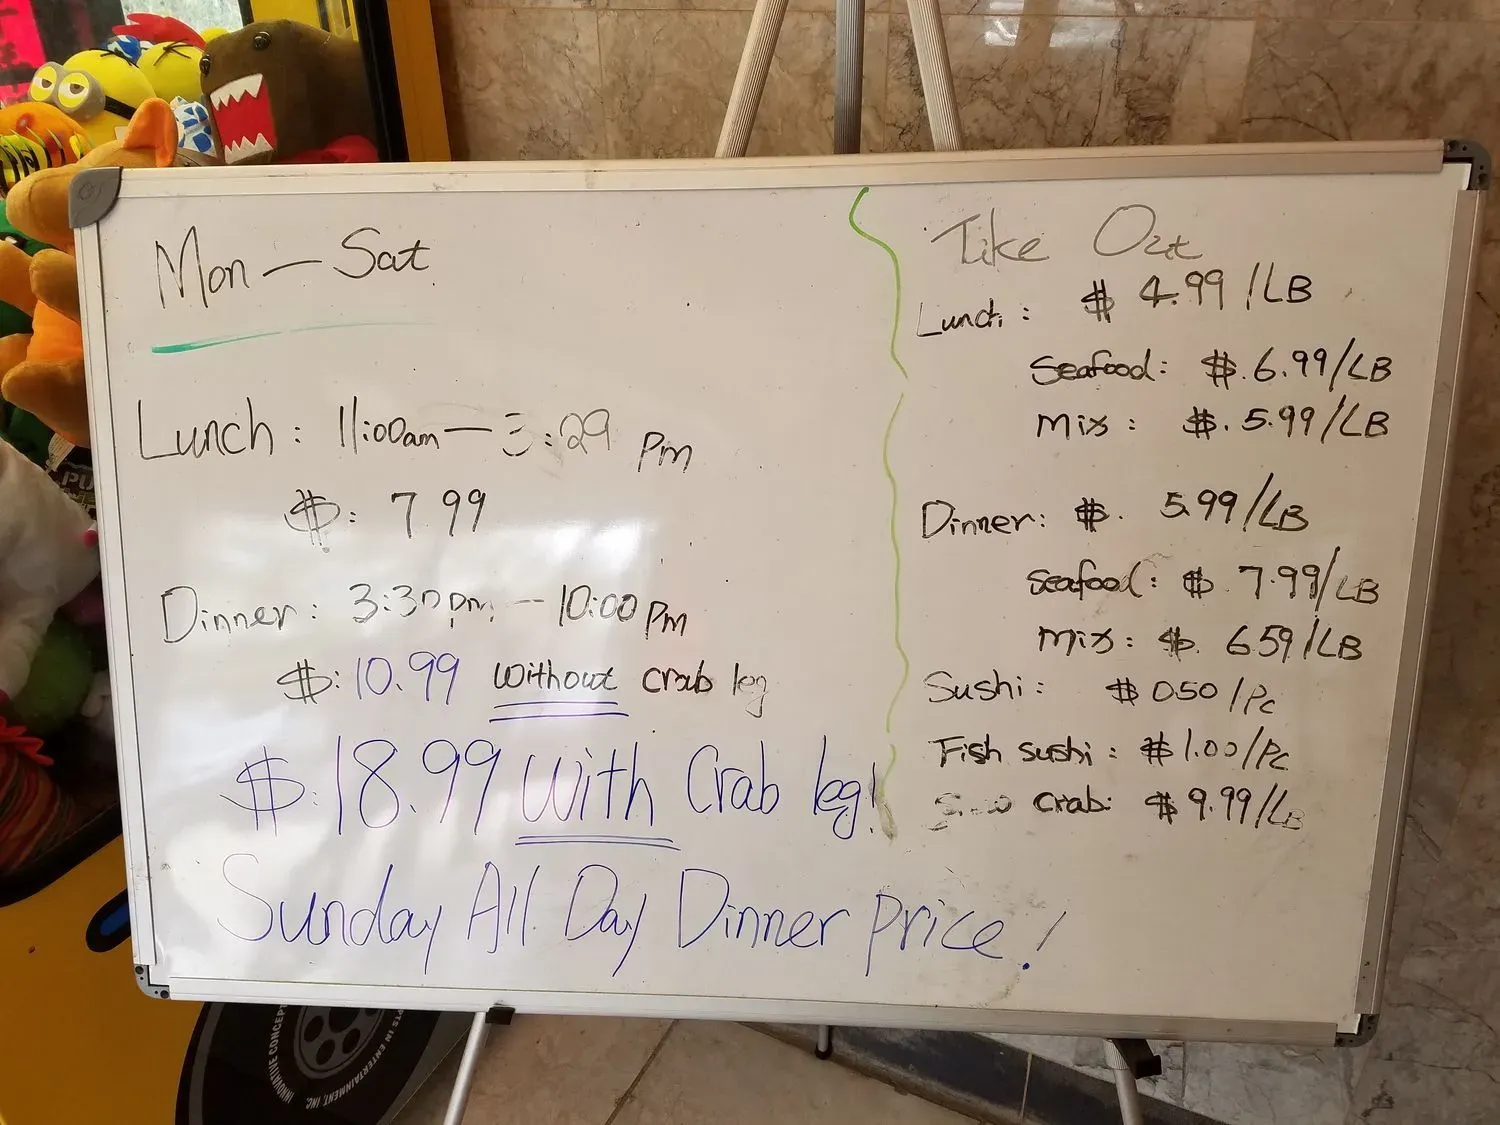 Mon – Sat
Lunch : 11:00am – 3:29 Pm
$: 7.99
Dinner : 3:30 Pm – 10:00 Pm
$: 10.99 without crab leg
$:18.99 With Crab leg!
Sunday All Day Dinner Price!
Take Out
Lunch : $ 4.99 /LB
Seafood: $.6.99/LB
Mix : $.5.99/LB
Dinner: $. 5.99/LB
Seafood: $ 7.99/LB
Mix: $. 6.59/LB
Sushi: $ 0.50/Pc
Fish sushi: $1.00/Pc
crab: $ 9.99/LB
INNOVATIVE CONCEPTS IN ENTERTAINMENT, INC.
PU